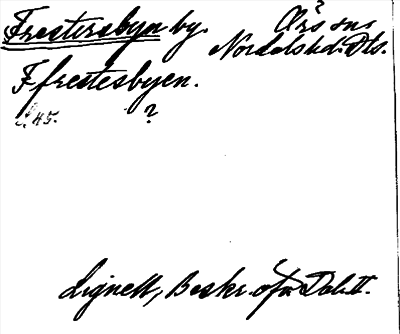 Frestersbyn by. Ærs sn.
Nordals hd. Dls.
Ffrestesbyen.
S. 45. ?
Lignell, Beskr. öfv. Dal. II.